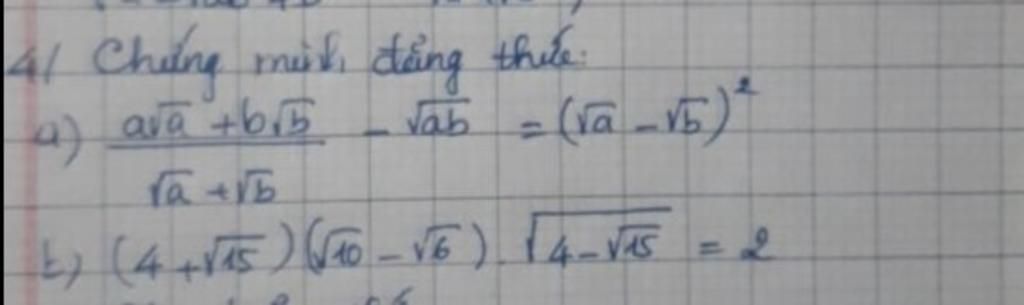 4/ Chứng minh đẳng thức:
a) (a√a + b√b) / (√a + √b) - √ab = (√a - √b)²
b) (4 + √15)(√10 - √6).√(4 - √15) = 2